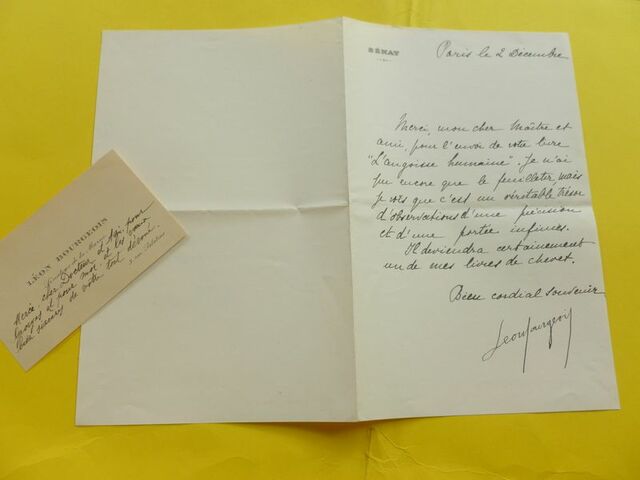 SÉNAT
Paris le 2 Décembre
Merci, mon cher Maître et
ami, pour l'envoi de votre livre
"L'angoisse humaine". Je n'ai
pu encore que le feuilleter, mais
je vois que c'est un véritable trésor
d'observations d'une précision
et d'une portée infinies.
Il deviendra certainement
un de mes livres de chevet.
Bien cordial souvenir
Leon Bourgeois
LÉON BOURGEOIS
Merci cher Docteur
pour moi
de votre tout dévoué.